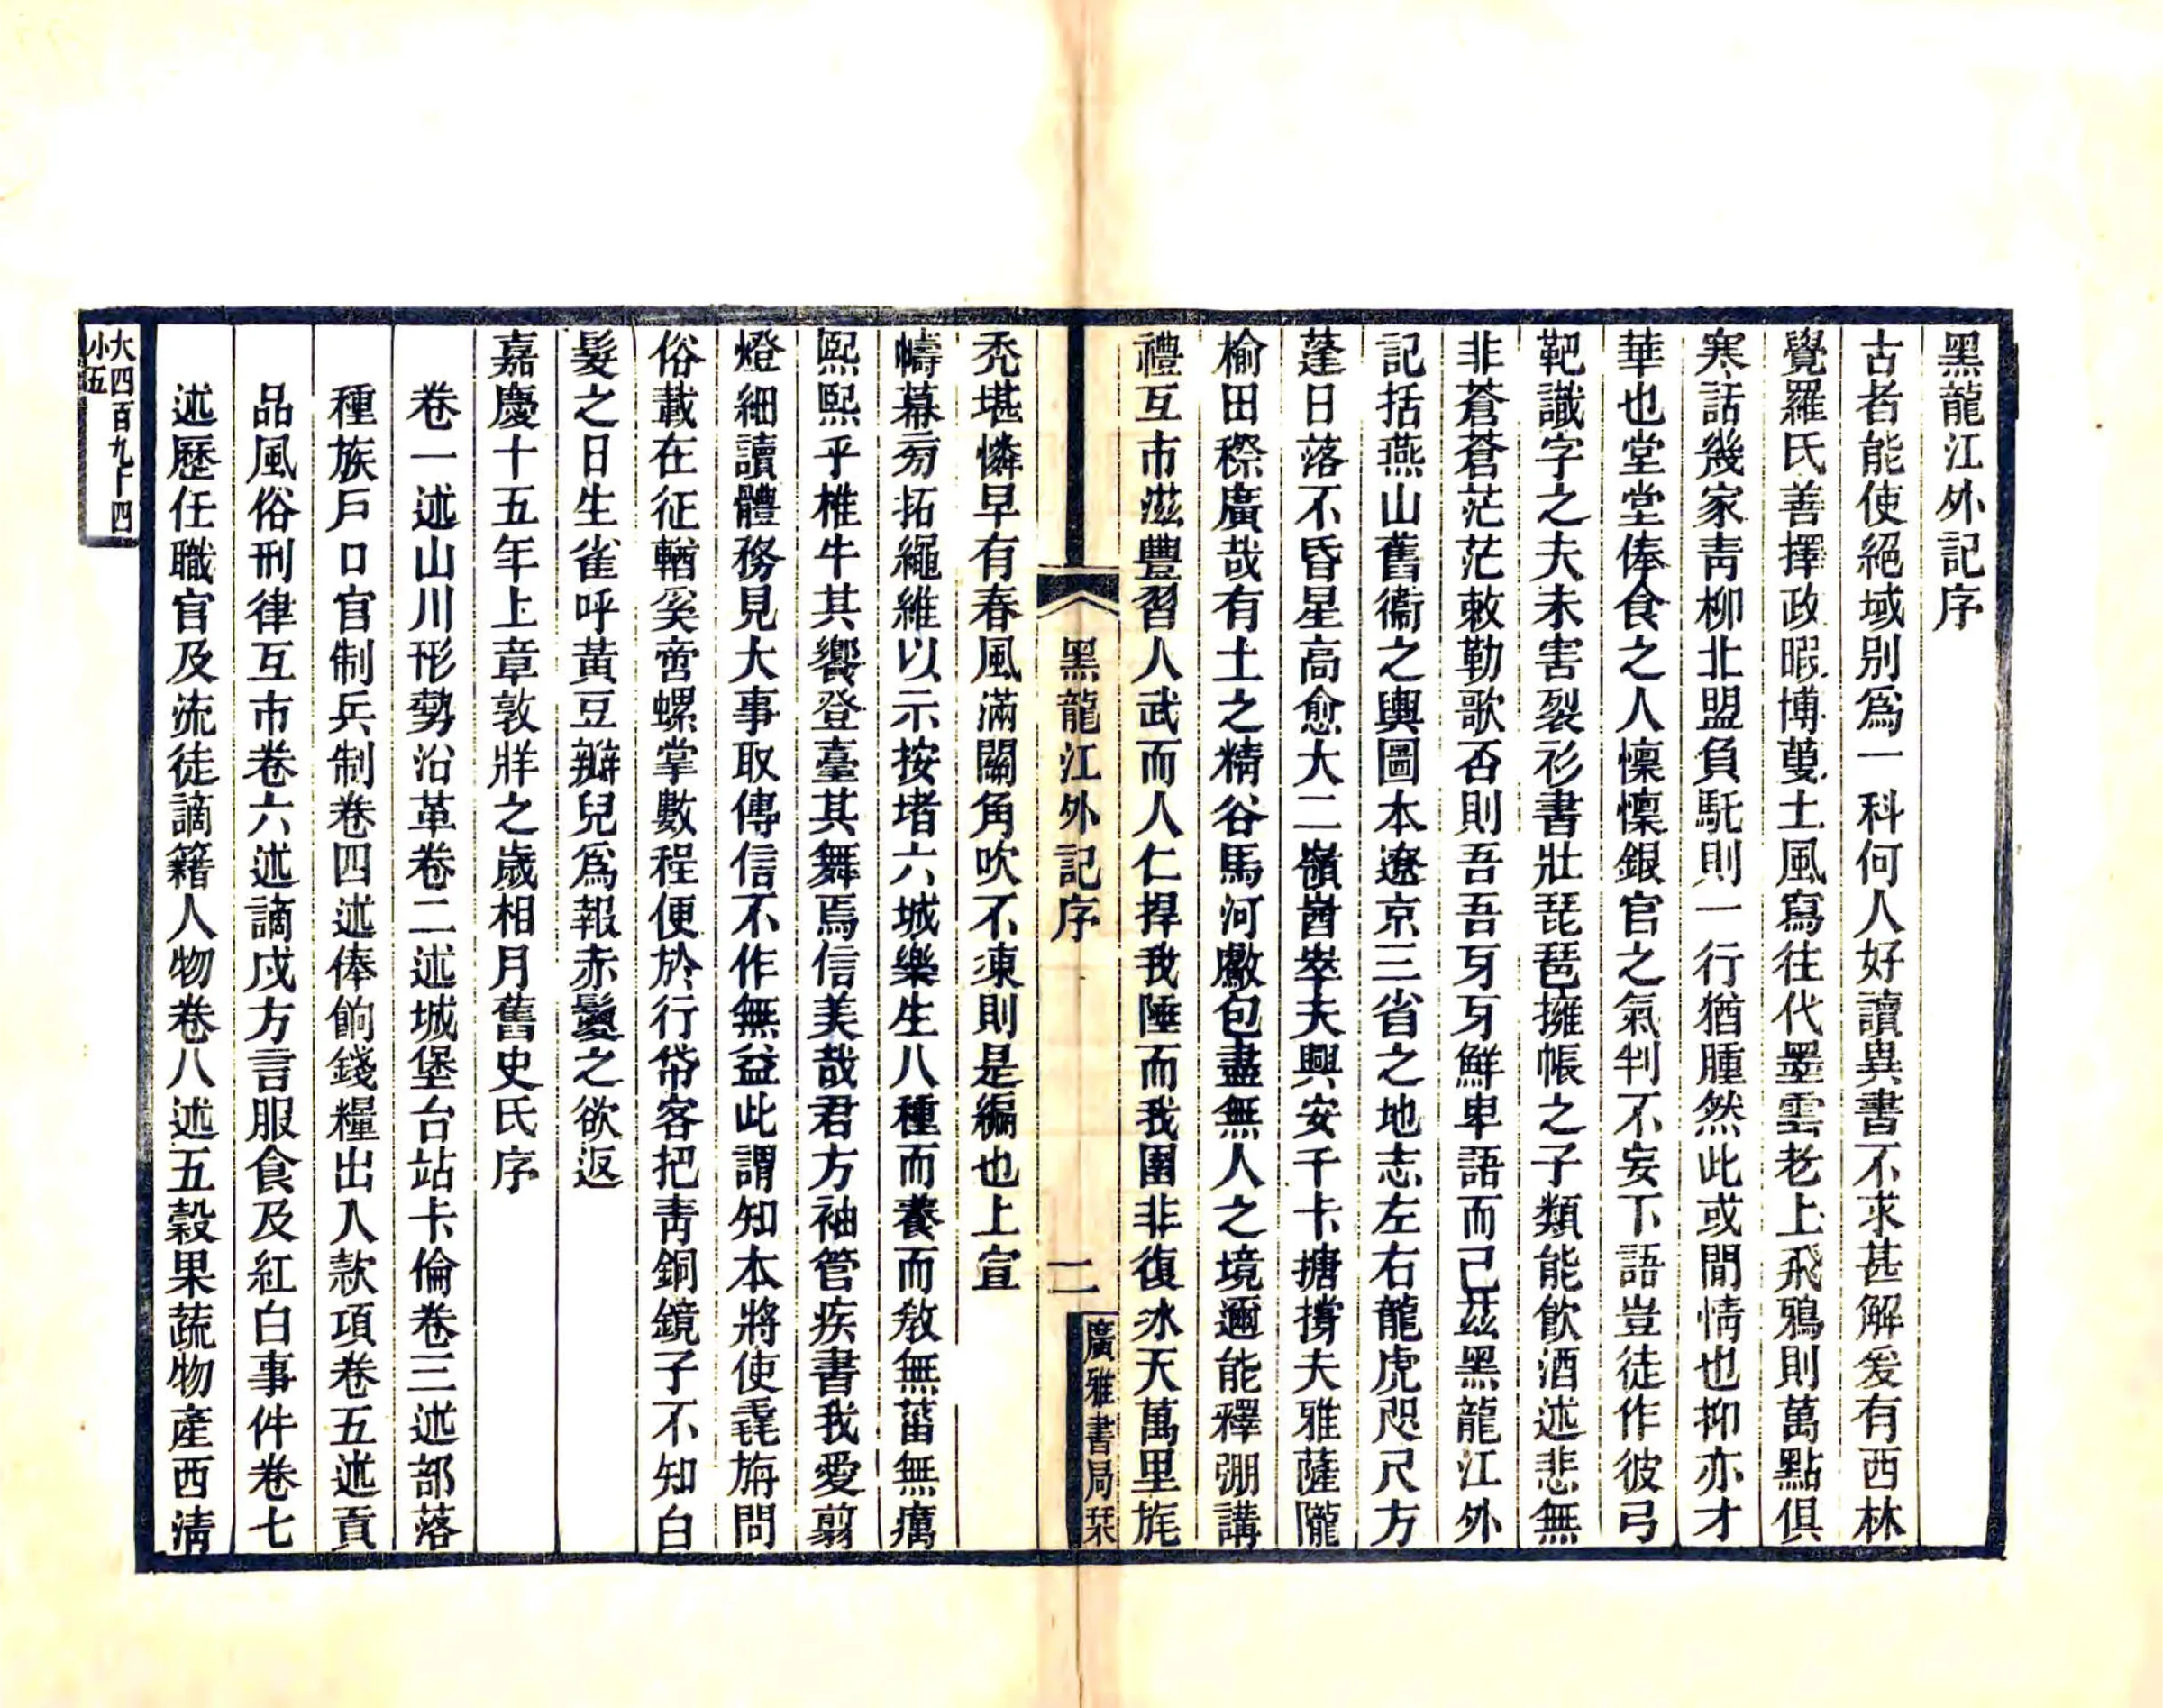 黑龍江外記序
古者能使絕域別爲一科何人好讀異書不求甚解爰有西林
覺羅氏善擇政暇博蒐土風寫往代墨雲老上飛鴉則萬點俱
寒話幾家靑柳北盟負馲則一行猶腫然此或閒情也抑亦才
華也堂堂俸食之人懍懍銀官之氣判不妄下語豈徒作彼弓
靶識字之夫未害裂衫書壯琵琶擁帳之子類能飮酒述悲無
非蒼蒼茫茫敕勒歌否則吾吾牙牙鮮卑語而已茲黑龍江外
記括燕山舊衞之輿圖本遼京三省之地志左右龍虎咫尺方
蓬日落不昏星高愈大二嶺崷崒夫興安千卡搪撐夫雅薩隴
榆田穄廣哉有土之精谷馬河獻包盡無人之境邇能釋弸講
禮互市滋豐習人武而人仁捍我陲而我圉非復冰天萬里旄
禿堪憐早有春風滿關角吹不凍則是編也上宣
幬幕旁拓繩維以示按堵六城樂生八種而養而敎無菑無癘
熙熙乎椎牛其饗登臺其舞焉信美哉君方袖管疾書我愛翦
燈細讀體務見大事取傳信不作無益此謂知本將使毳旃問
俗載在征輶奚啻螺掌數程便於行帒客把靑銅鏡子不知白
髮之日生雀呼黃豆瓣兒爲報赤鬘之欲返
嘉慶十五年上章敦牂之歲相月舊史氏序
卷一述山川形勢沿革卷二述城堡台站卡倫卷三述部落
種族戶口官制兵制卷四述俸餉錢糧出入款項卷五述貢
品風俗刑律互市卷六述謫戍方言服食及紅白事件卷七
述歷任職官及流徒謫籍人物卷八述五穀果蔬物產西淸
黑龍江外記序
一
廣雅書局栞
大四百九十四
小五